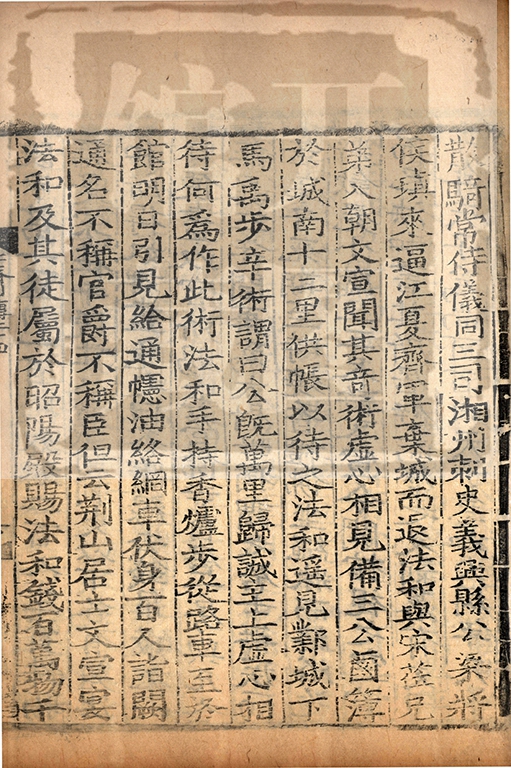 散騎常侍儀同三司湘州刺史義興縣公梁將
侯瑱來逼江夏齊軍棄城而退法和與宋蒞兄
弟入朝文宣聞其竒術虛心相見備三公鹵簿
於城南十二里供帳以待之法和遥見鄴城下
馬禹歩辛術謂曰公旣萬里歸誠主上虛心相
待何爲作此術法和手持香爐歩從路車至於
館明日引見給通幰油絡網車伏身百人詣闕
通名不稱官爵不稱臣但云荆山居士文宣宴
法和及其徒屬於昭陽殿賜法和錢百萬物千